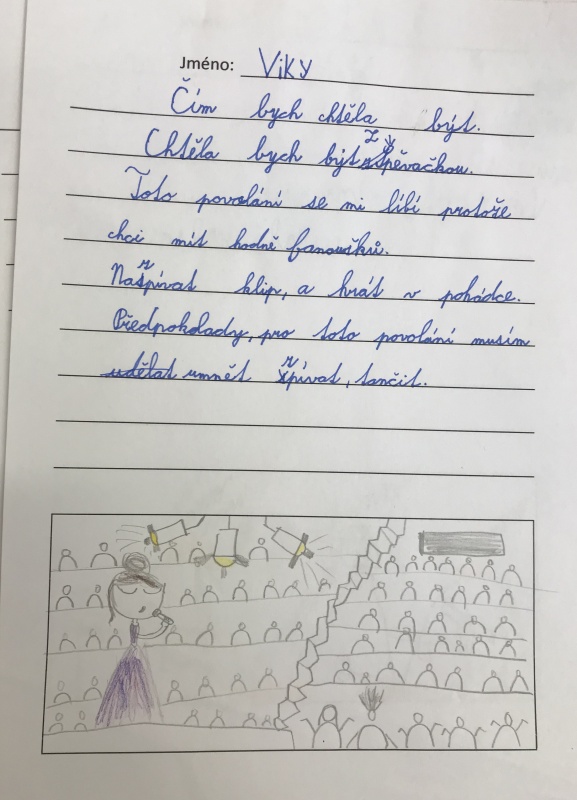 Jméno: Viky
Čím bych chtěla být.
Chtěla bych být zpěvačkou.
Toto povolání se mi líbí protože
chci mít hodně fanoušků.
Nazpívat klip, a hrát v pohádce.
Předpoklady, pro toto povolání musím
udělat umnět zpívat, tančit.